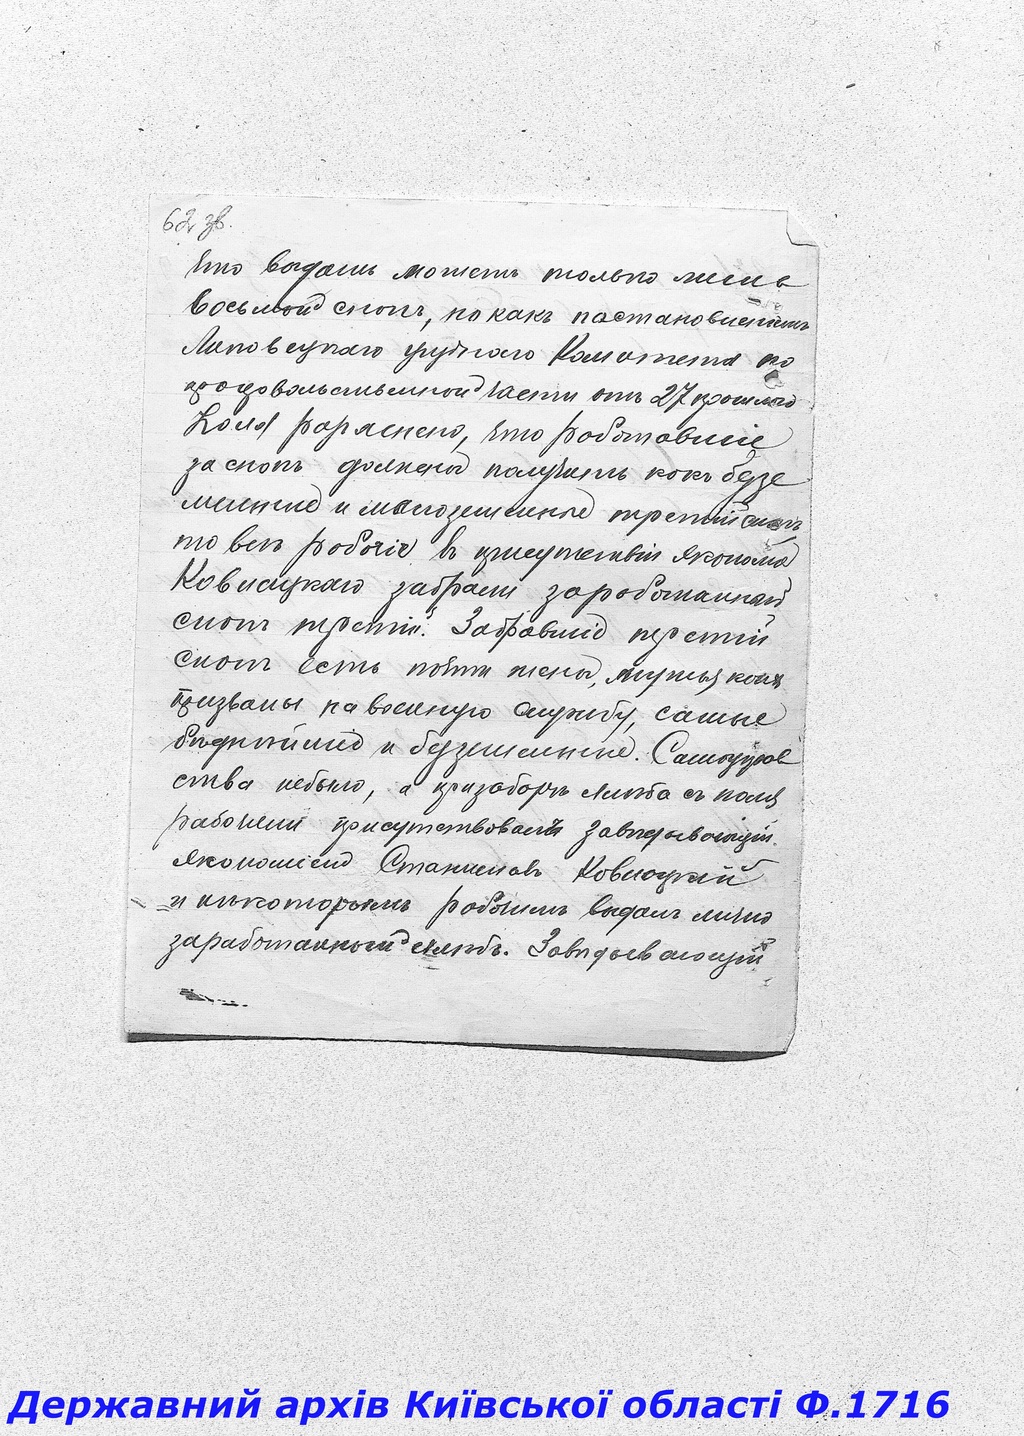 62 зв.
что выдать можетъ только лишь
восьмой снопъ, но какъ пастановленіемъ
Липовецкаго уезднаго Комитета по
продовольственной части отъ 27 прошлаго
Іюля разяснено, что работавшіе
за снопъ должны получить какъ безе
мельные и малоземельные третій снопъ
то все рабочіе въ присутствіи Яконома
Ковнацкаго забрали заработанный
снопъ третій. Забравшіе третій
снопъ есть почти жены, мужья коихъ
призваны на военную службу, самые
бѣднѣйшіе и безземельные. Самоуправ
ства небыло, а призаборѣ хлѣба съ поля
рабочими присутствовалъ Завѣдывающій
Якономіей Станиславъ Ковнацкій
и нѣкоторымъ рабочимъ выдалъ лично
заработанный хлѣбъ. Завѣдывающій
Державний архів Київської області Ф.1716